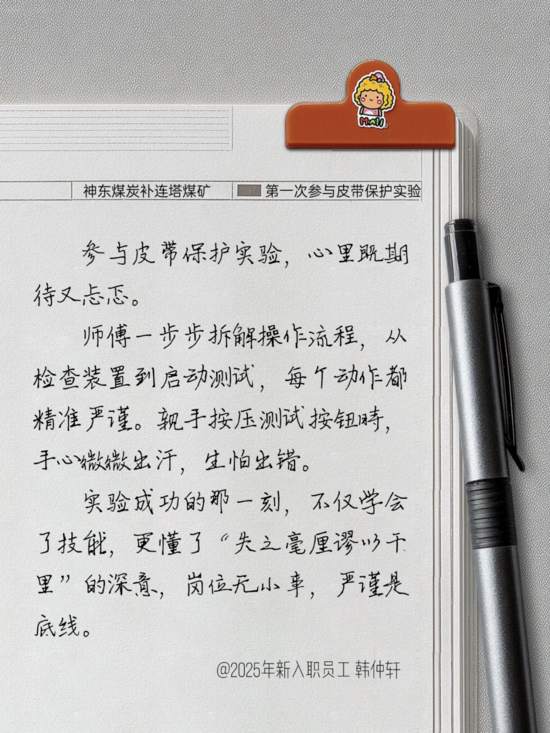 Mall
神东煤炭补连塔煤矿 第一次参与皮带保护实验
参与皮带保护实验，心里既期
待又忐忑。
师傅一步步拆解操作流程，从
检查装置到启动测试，每个动作都
精准严谨。亲手按压测试按钮时，
手心微微出汗，生怕出错。
实验成功的那一刻，不仅学会
了技能，更懂了“失之毫厘谬以千
里”的深意，岗位无小事，严谨是
底线。
@2025年新入职员工 韩仲轩